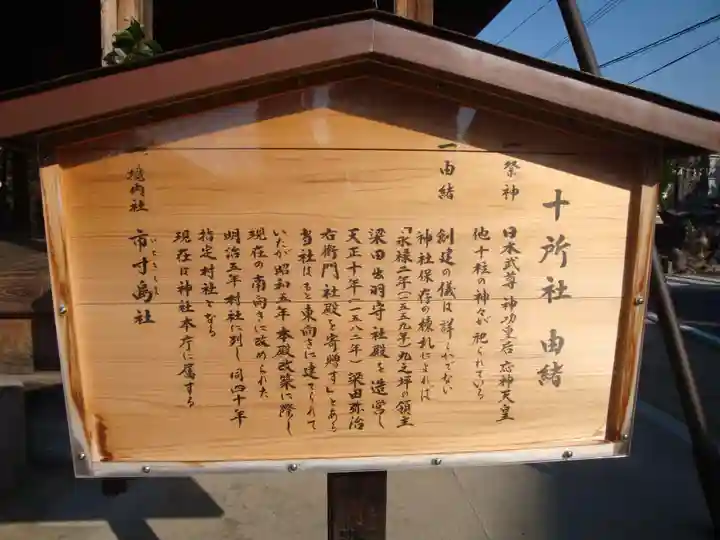 十所社 由緒
一 祭神 日本武尊 神功皇后 応神天皇
他十柱の神々が祀られている
一 由緒 創建の儀は詳しれでない
神社保存の棟札によれば
「永禄二年(一五五九年)九之坪の領主
梁田出羽守 社殿を造営し
天正十年(一五八二年)梁田弥治
右衛門 社殿を寄贈す」とある
当社はもと東向きに建てられて
いたが昭和五年本殿改築に際し
現在の南向きに改められた
明治五年村社に列し 同四十年
指定村社となる
現在は神社本庁に属する
一 境内社 市寸島社
いちきしま